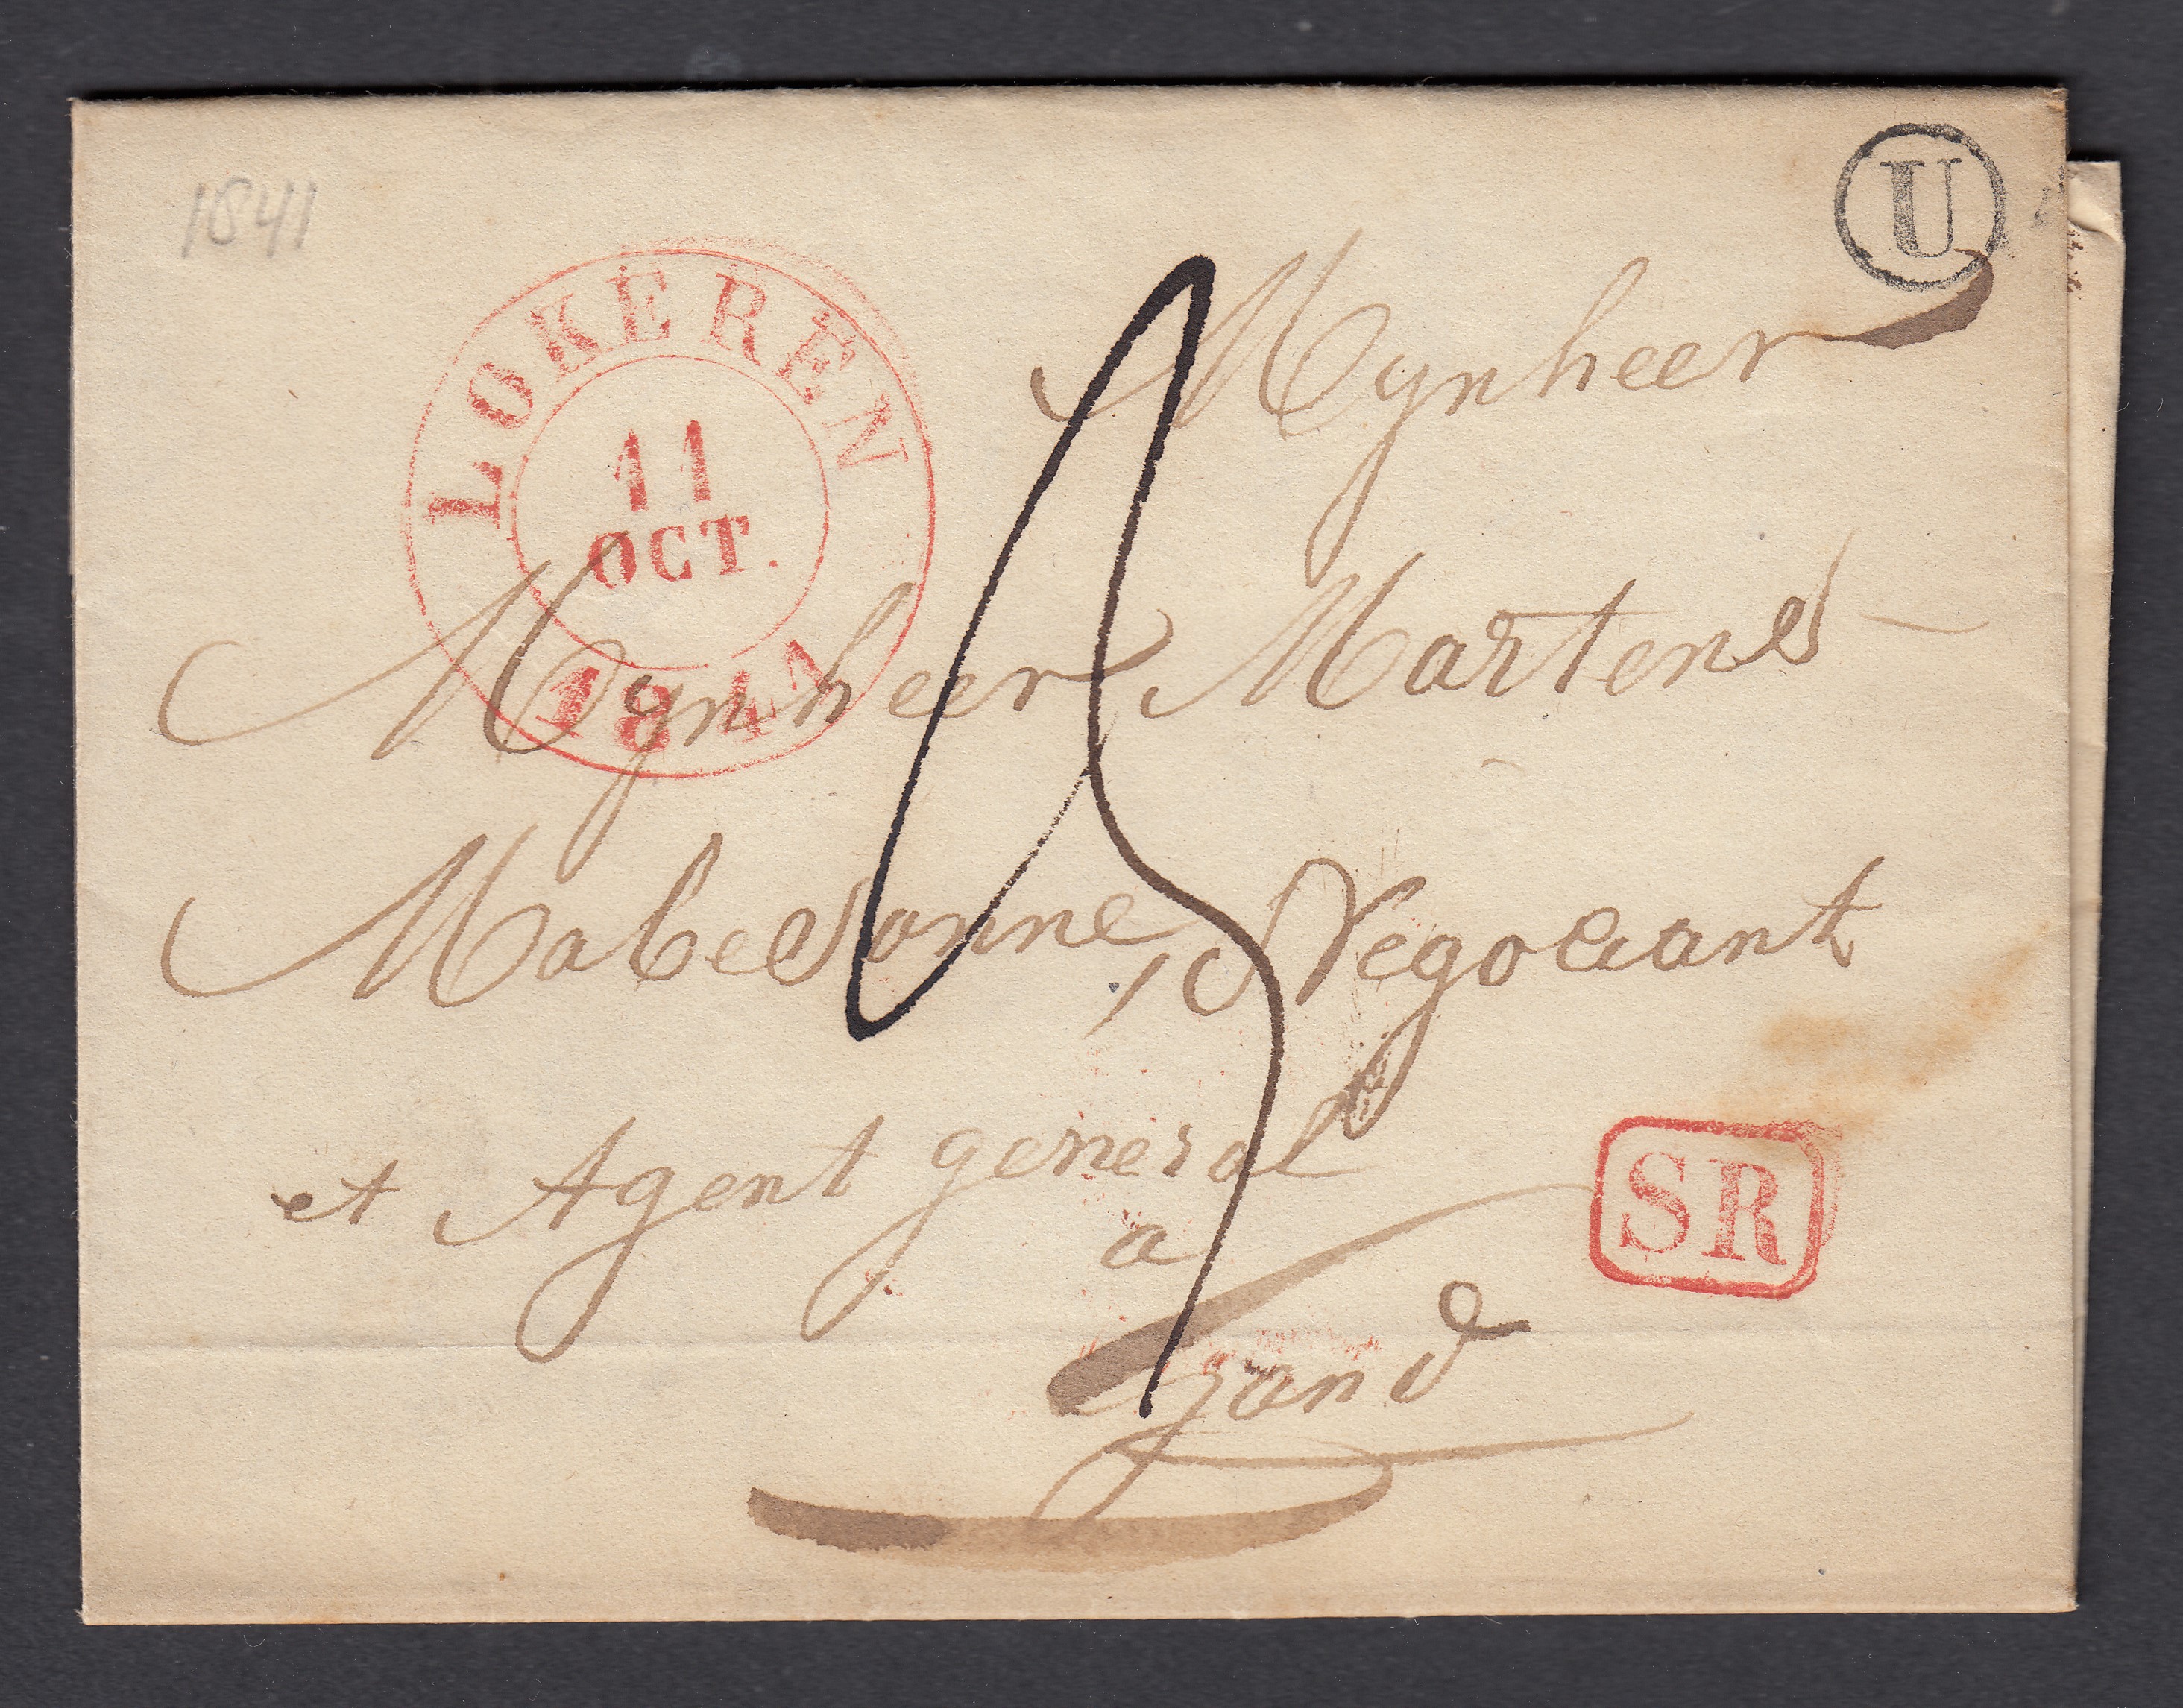 1841
U
LOKEREN
11
OCT.
1841
Mynheer
Mynheer Martens
Mabesonne, Négociant
et Agent general
a
Gand
SR